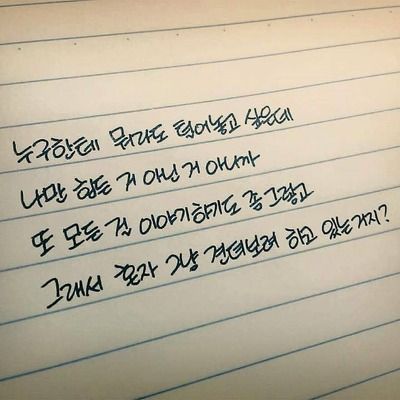 누구한테 뭐라도 털어놓고 싶은데
나만 힘든 거 아닌 거 아니까
또 모든 걸 이야기하기도 좀 그렇고
그래서 혼자 그냥 견뎌보려 하고 있는거지?